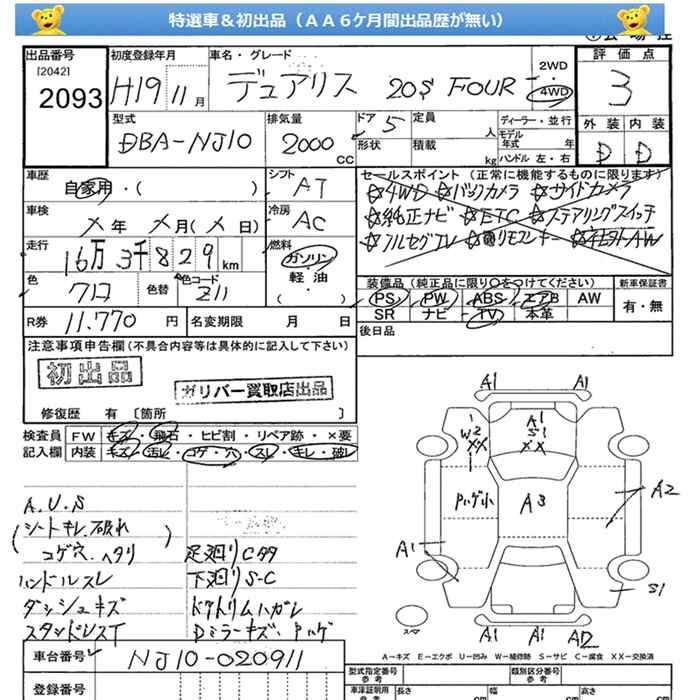 特選車＆初出品（ＡＡ６ケ月間出品歴が無い）
出品番号 初度登録年月 車名・グレード 2WD 評価点
[2042]
2093 H19 11月 デュアリス 20S FOUR 4WD 3
型式 排気量 ドア 5 定員 人 ディーラー・並行 外装 内装
DBA-NJ10 2000 CC 形状 積載 kg モデル年式 年 D D
ハンドル 左・右
車歴 シフト AT セールスポイント(正常に機能するものに限ります)
自家用・( ) ☆4WD ☆バックカメラ ☆サイドカメラ
車検 メ年 メ月(メ日) 冷房 AC ☆純正ナビ ☆ETC ☆ステアリングスイッチ
走行 16万3千829km 燃料 ガソリン 軽油 ( ) ☆フルセグTV
装備品(純正品に限り○をつけてください) 新車保証書
色 クロ 色替 色コード Z11 PS PW ABS エアB AW 有・無
SR ナビ TV 本革
R券 11.770 円 名変期限 月 日 後日品
注意事項申告欄(不具合内容等は具体的に記入して下さい)
初出品
ガリバー買取店出品
修復歴 有 〔箇所 〕
検査員 FW キズ・飛石・ヒビ割・リペア跡・×要
記入欄 内装 キズ・汚レ・コゲ・穴・スレ・キレ・破レ
A.U.S
(シートキレ.破れ
コゲ穴.ヘタリ)
足廻りCタタ
ハンドルスレ 下廻りS-C
ダッシュキズ ドアトリムハガレ
スタッドレスT Dミラーキズ.ハゲ
A1 A1
W2 XX
A1 S1 XX
ハゲ小 A3 A2
A1
S1
スペア
A1 A1 A2
A－キズ E－エクボ U－凹み W－補修跡 S－サビ C－腐食 XX－交換済
車台番号 NJ10-020911
登録番号
型式指定番号 参考 類別区分番号 参考
車庫証明用 参考 長さ cm 幅 cm 高さ cm